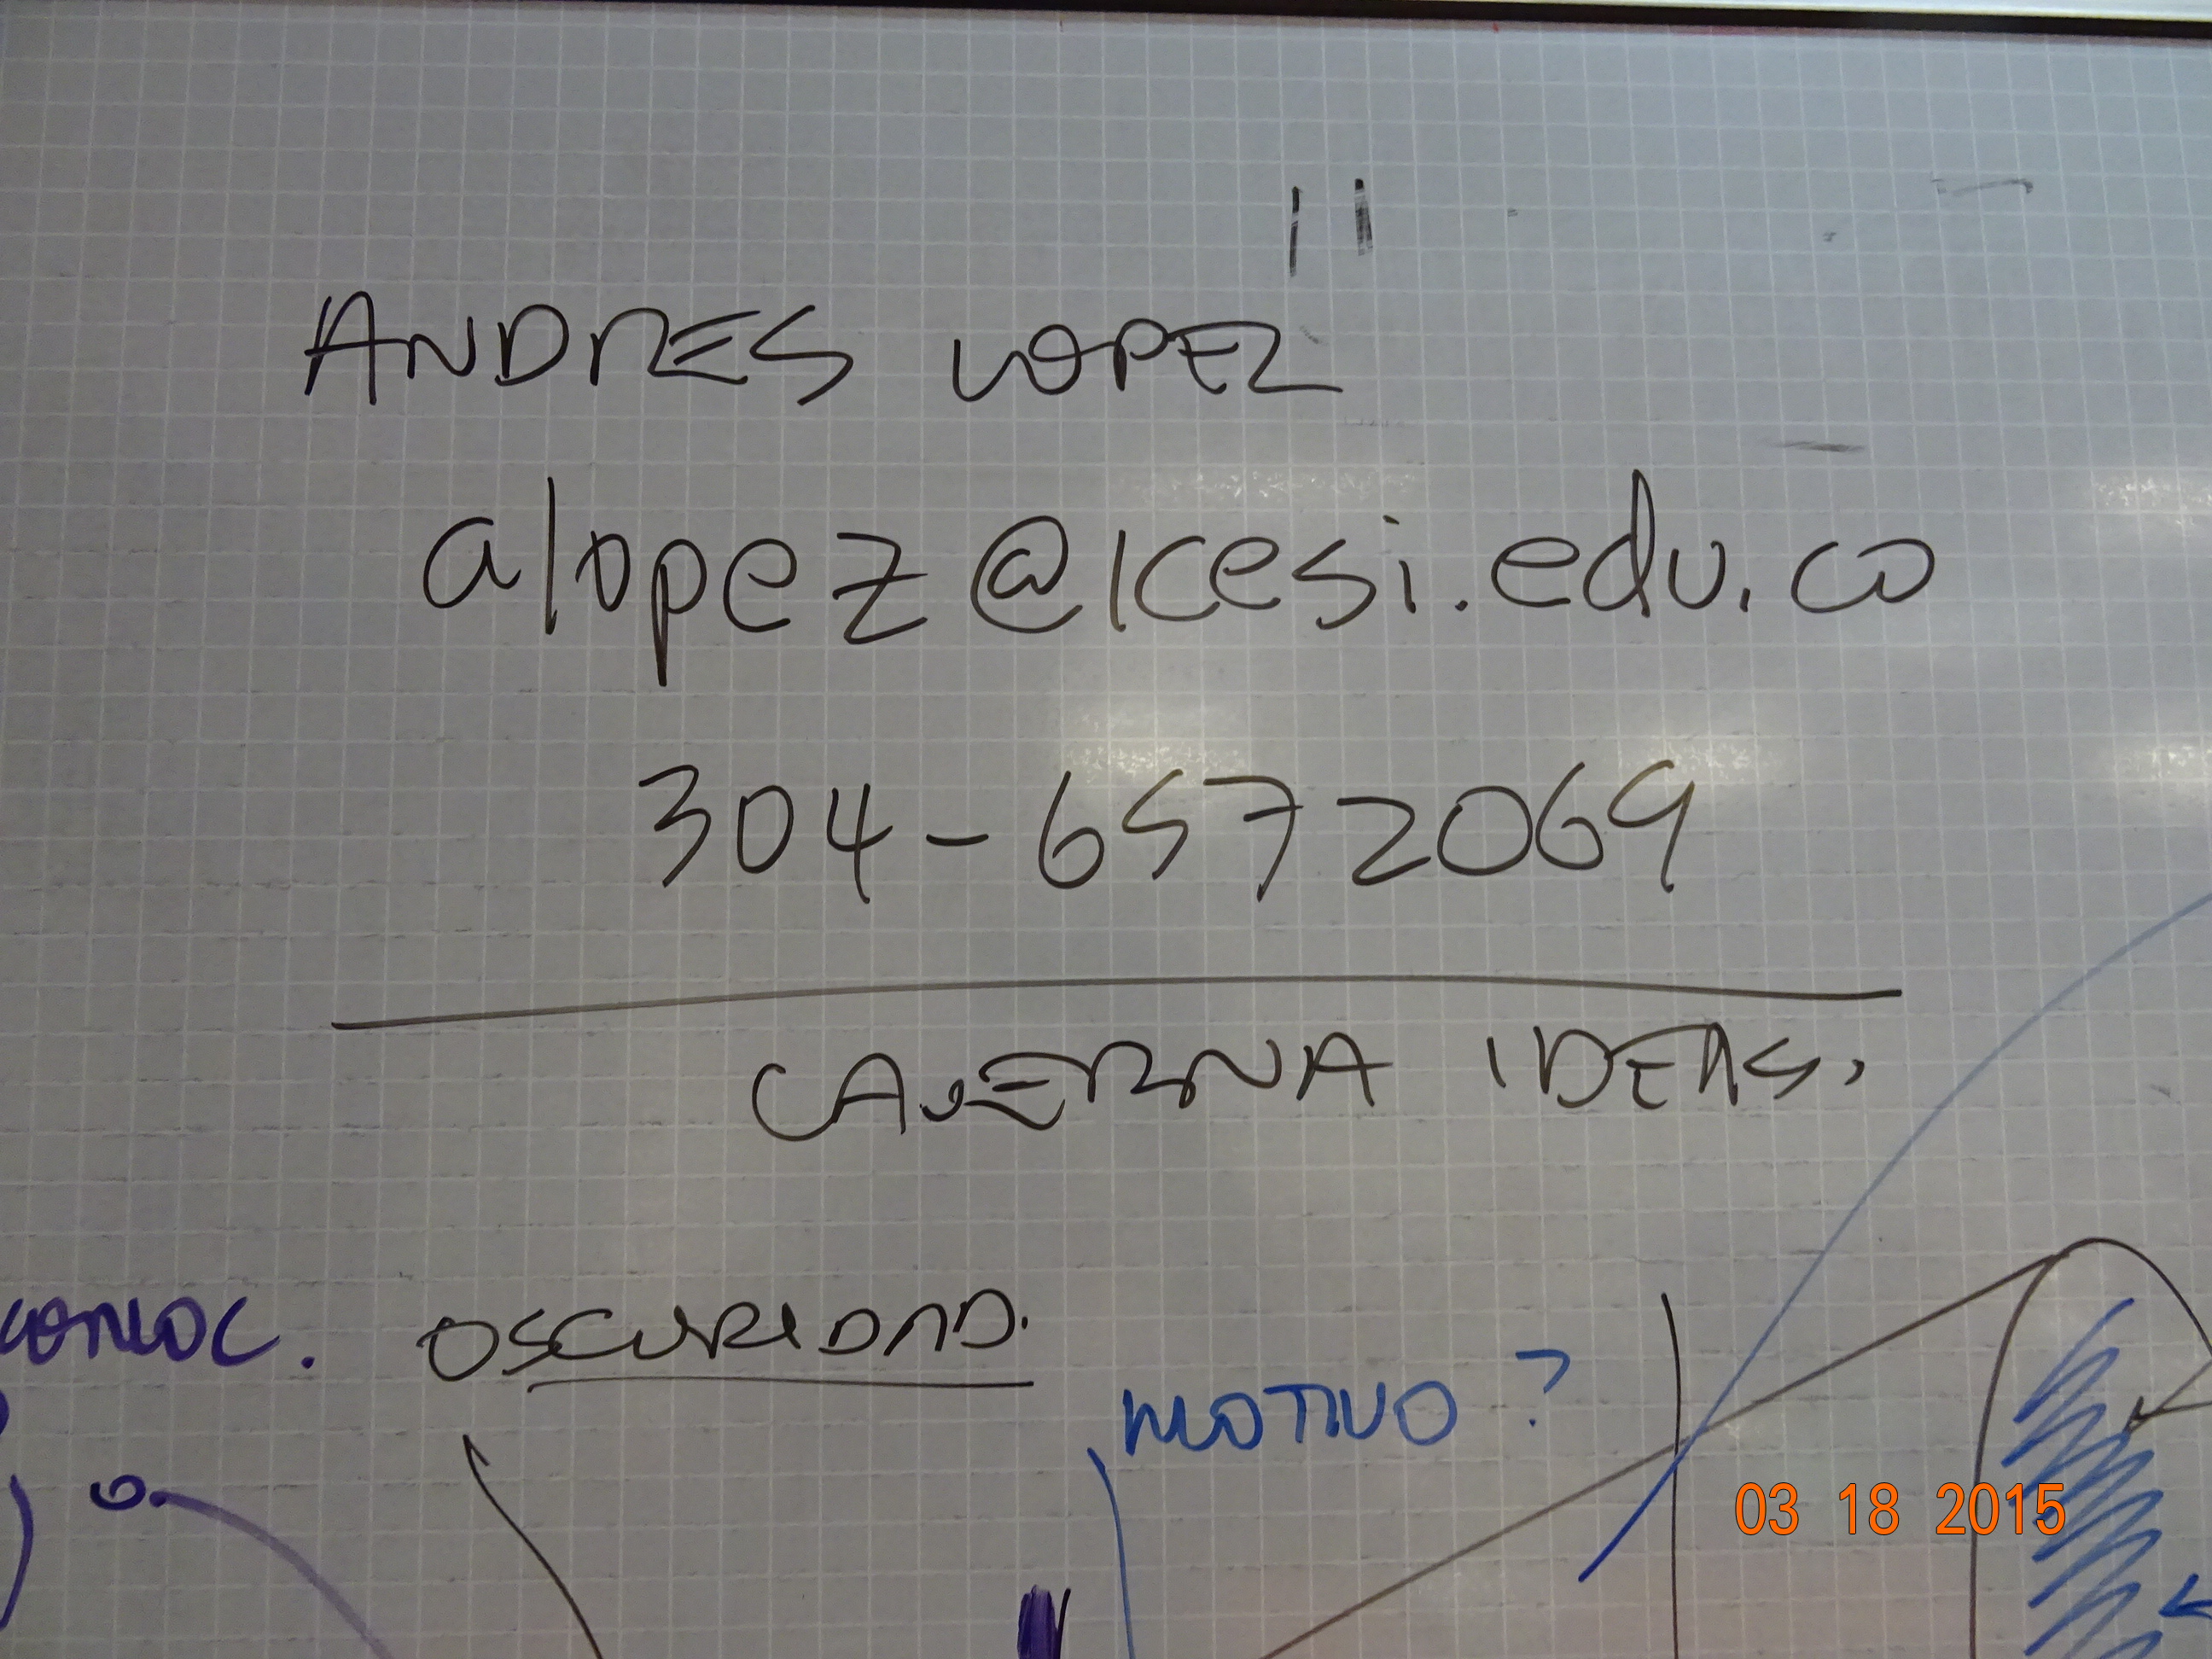 ANDRES LOPEZ
alopez@icesi.edu.co
304-6572069
CAVERNA IDEAS.
CONOC. OSCURIDAD.
MOTIVO?
03 18 2015